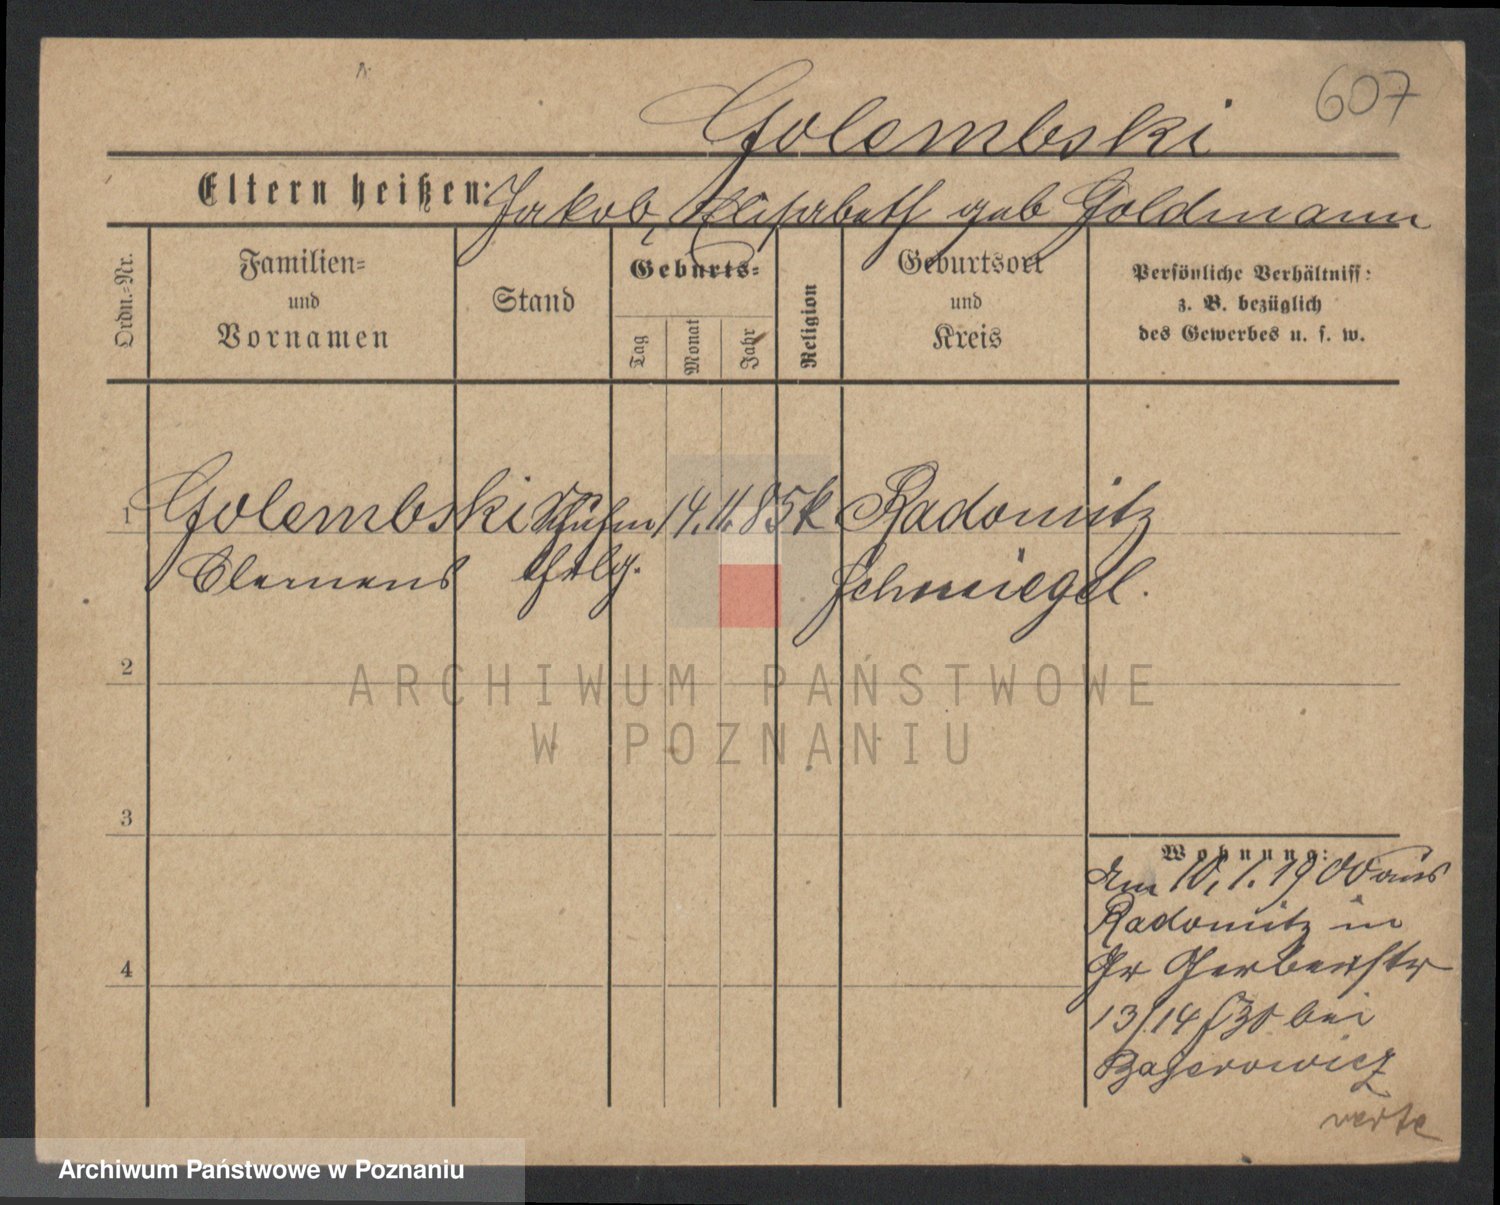 607
Golembski
Eltern heißen: Jakob, Elisabeth geb Goldmann
Ordn.-Nr.
Familien-
und
Vornamen
Stand
Geburts-
Tag
Monat
Jahr
Religion
Geburtsort
und
Kreis
Persönliche Verhältniss:
z. B. bezüglich
des Gewerbes u. s. w.
1 Golembski Schuhm 14. 11. 85 k Radomitz
Clemens Schmiegel.
2
3
4
Wohnung:
Am 10. 1. 1900 aus
Radomitz in
Gr Gerberstr
13/14 bei
verte
ARCHIWUM PAŃSTWOWE
W POZNANIU
Archiwum Państwowe w Poznaniu